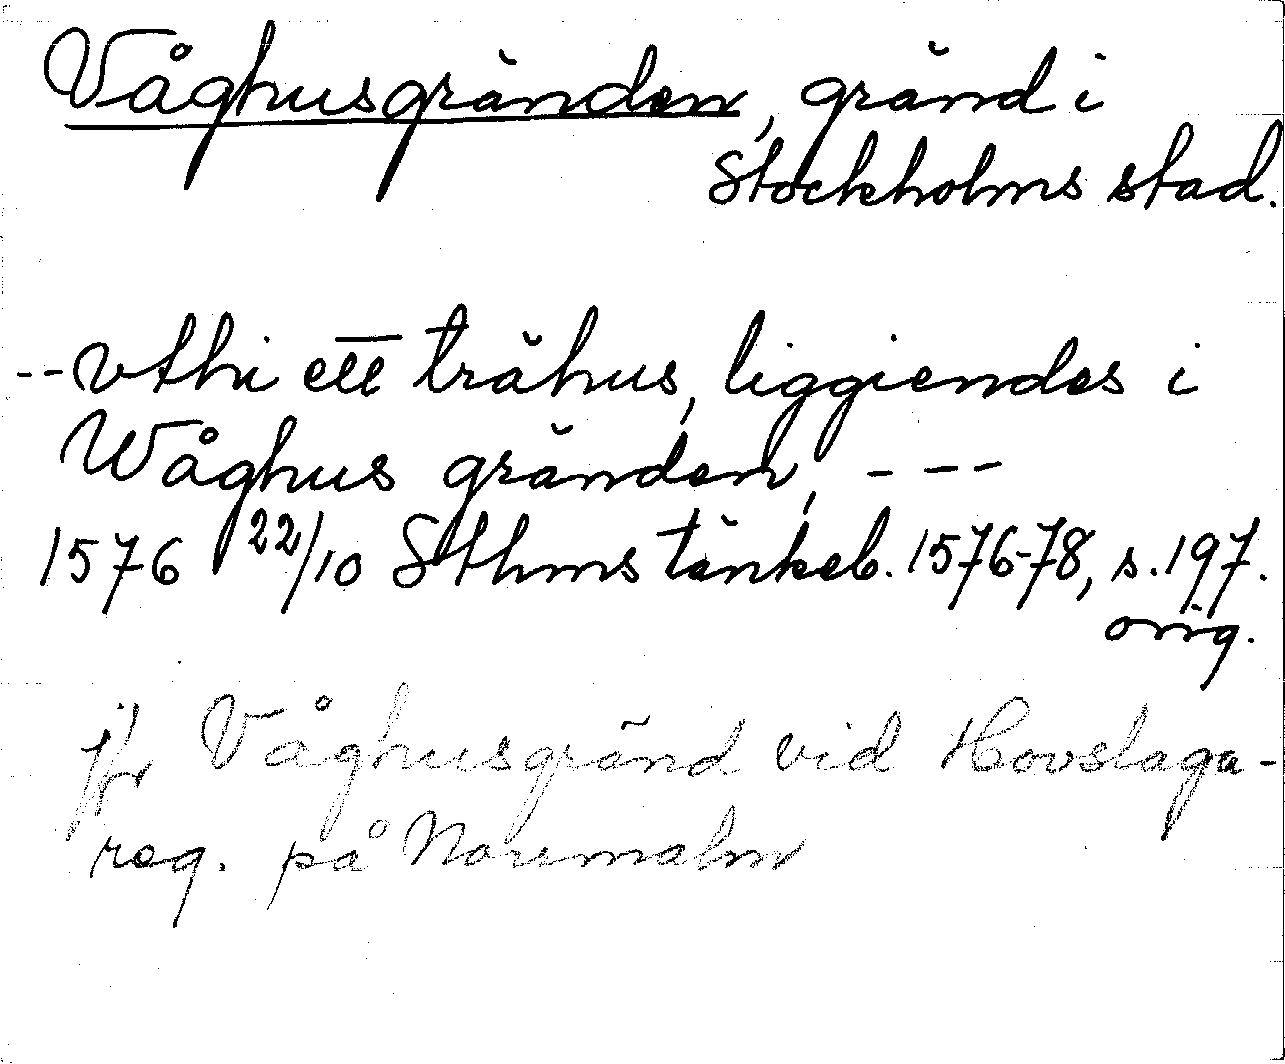 Våghusgränden, gränd i
Stockholms stad.
--vthi ett trähus, liggiendes i
Wåghus gränden, ---
1576 22/10 Sthms tänkeb. 1576-78, s. 197.
orig.
jfr Våghusgränd vid Hovslaga-
reg. på Norrmalm